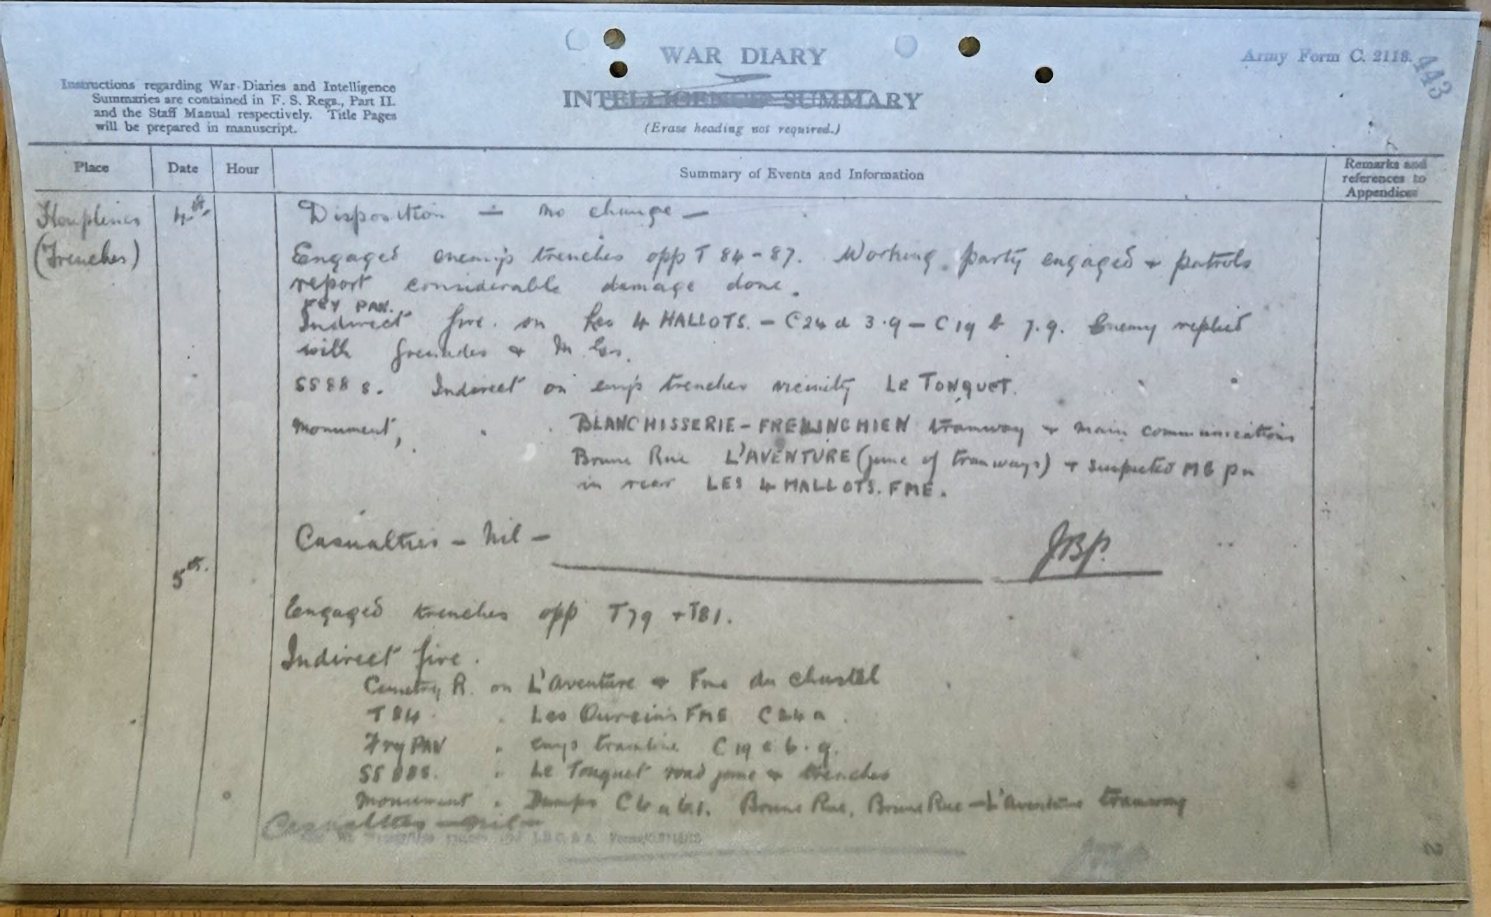 WAR DIARY
Army Form C. 2118.
443
Instructions regarding War Diaries and Intelligence
Summaries are contained in F. S. Regs., Part II.
and the Staff Manual respectively. Title Pages
will be prepared in manuscript.
INTELLIGENCE SUMMARY
(Erase heading not required.)
Place Date Hour Summary of Events and Information Remarks and references to Appendices
Houplines 4th. Disposition - no change -
(Trenches)
Engaged enemy's trenches opp T 84-87. Working party engaged & patrols
report considerable damage done.
FRY PAN.
Indirect fire on Les 4 HALLOTS. - C24d 3.9 - C19 b 7.9. Enemy replied
with grenades & M Gs.
SS88 s. Indirect on enys trenches vicinity LE TOUQUET.
Monument, BLANCHISSERIE-FRELINGHIEN tramway & main communications
Brune Rue L'AVENTURE (junc of tramways) & suspected MG pn
in rear LES 4 HALLOTS. FME.
Casualties - Nil - JBP.
5th.
Engaged trenches opp T79 & T81.
Indirect fire.
Cemetery R. on L'Aventure & Fme du chastel
T84 . Les FME C24a.
Fry PAN . enys tramline C19 c 6.9.
SS 88s. . Le Touquet road junc & trenches
Monument . Dumps Brune Rue, Brune Rue - L'Aventure tramway
Casualties - Nil -